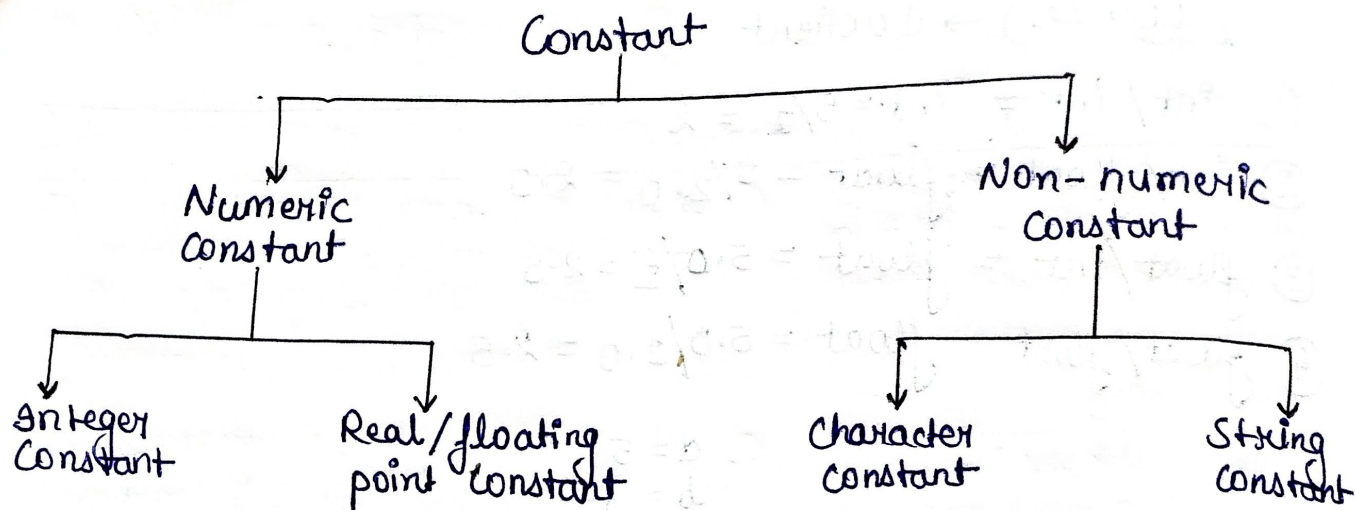 Constant
Numeric
constant
Non-numeric
constant
Integer
Constant
Real/floating
point constant
character
constant
String
constant